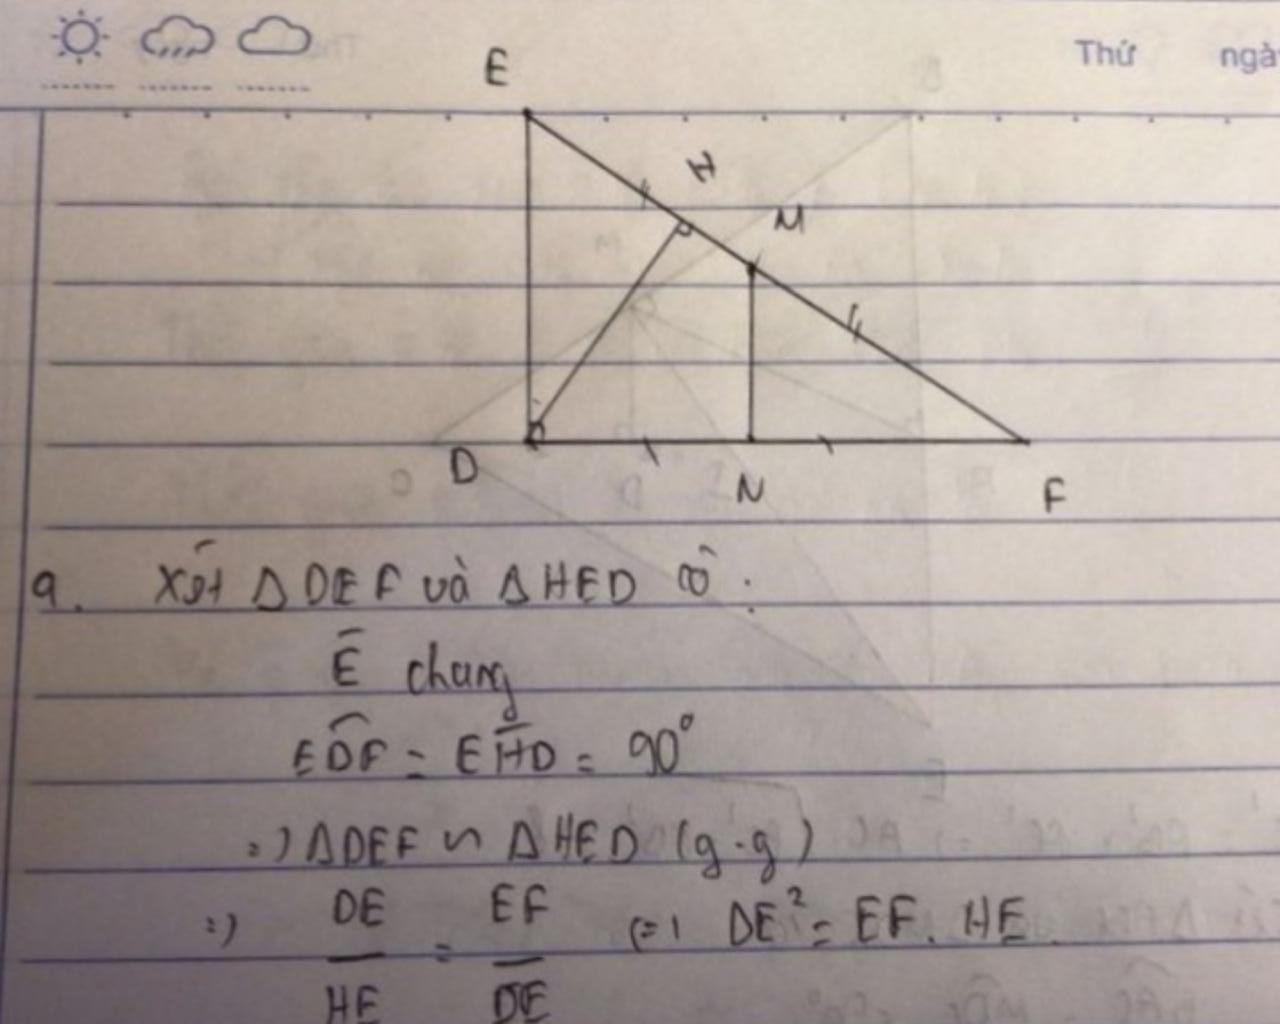 Thứ ngà
E
H
M
D
N
F
a. Xét Δ DEF và Δ HED có :
Ê chung
EDF = EHD = 90°
=) ΔDEF ∽ ΔHED (g.g)
=) DE/HE = EF/DE (=) DE² = EF. HE.